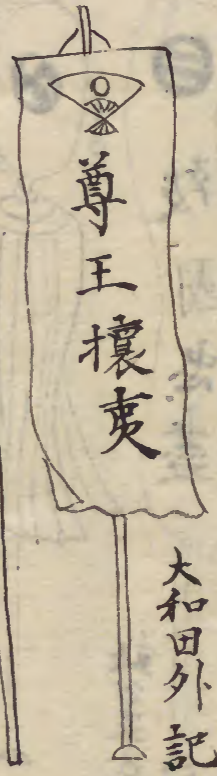 尊王攘夷
大和田外記